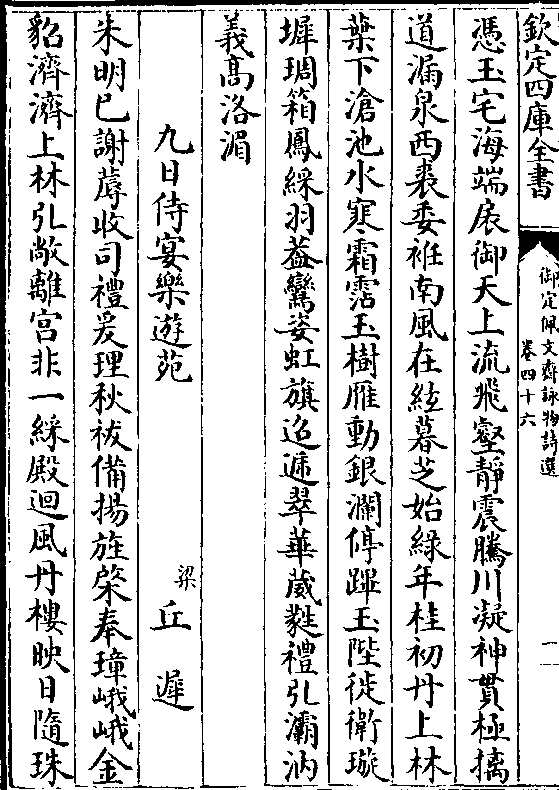 欽定四庫全書
御定佩文齋詠物詩選
卷四十六
一
憑玉宅海端扆御天上流飛壑靜震騰川凝神貫極摛
道漏泉西裘委袵南風在絃暮芝始綠年桂初丹上林
葉下滄池水寒霜霑玉樹雁動銀瀾停蹕玉陛徙衛璇
墀琱箱鳳綵羽葢鸞姿虹旗迢遞翠華葳蕤禮引灞汭
義髙洛湄
九日侍宴樂遊苑
梁 丘遲
朱明已謝蓐收司禮爰理秋祓備揚旌棨奉璋峨峨金
貂濟濟上林引敞離宮非一綵殿迴風丹樓映日隨珠